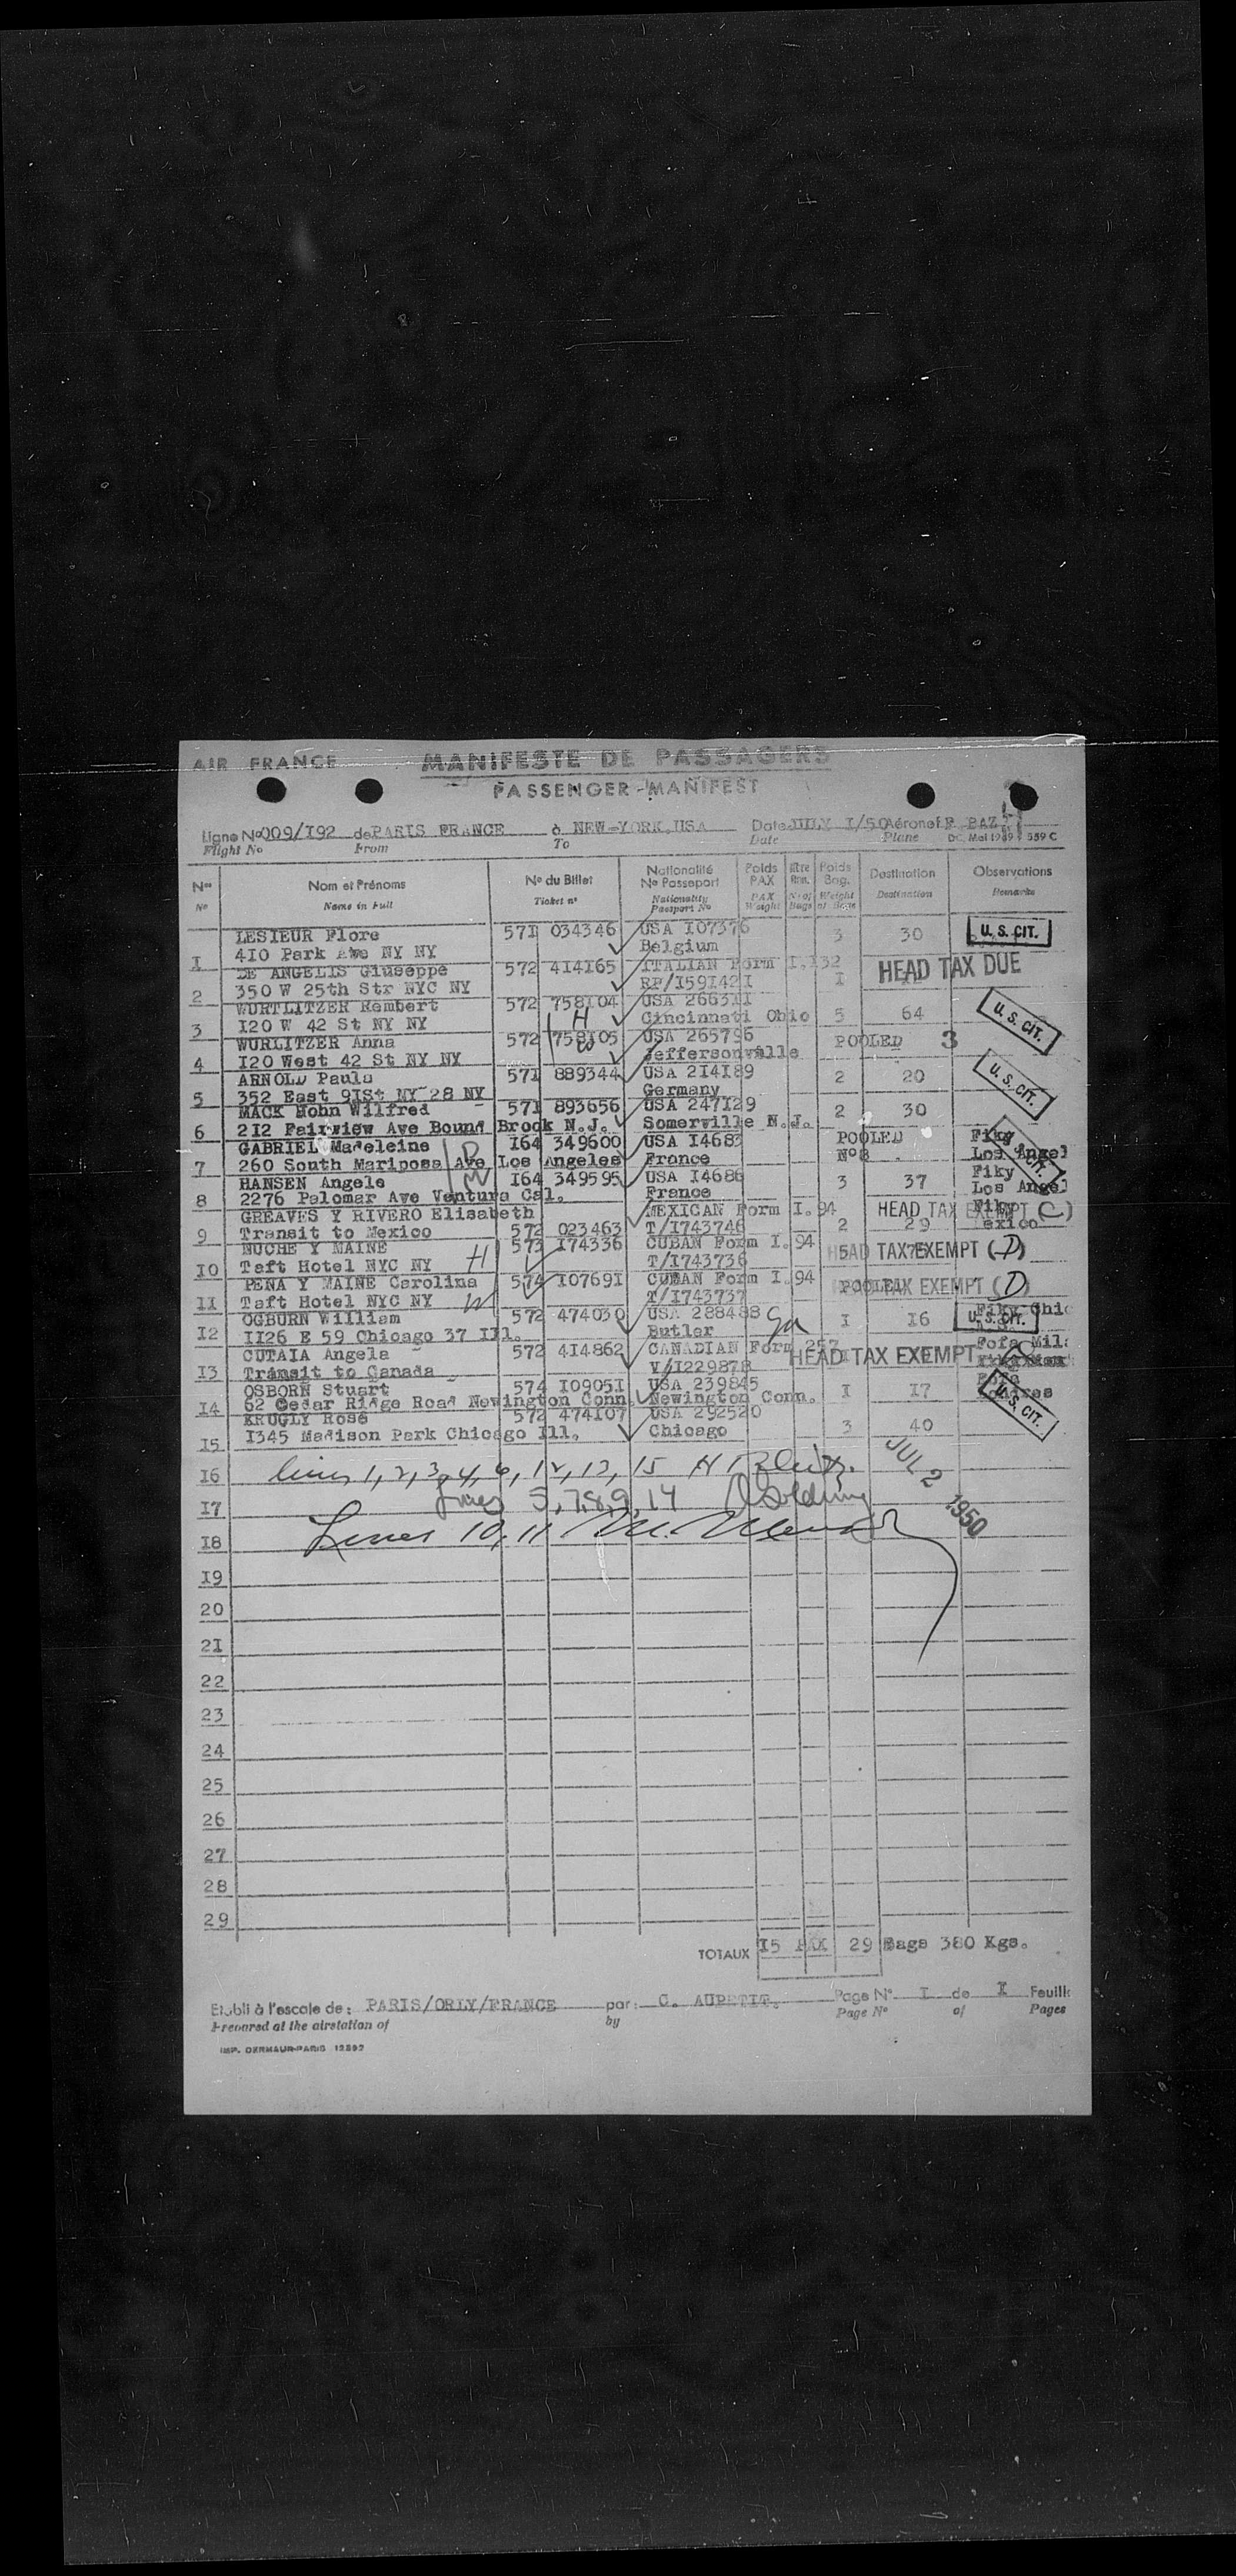 AIR FRANCE MANIFESTE DE PASSAGERS
PASSENGER-MANIFEST
Ligne No 009/I92 de PARIS FRANCE à NEW-YORK.USA Date JULY I/50 Aéronef F BAZ
Flight No From To Date Plane DC. Mai 1949 559 C
Nos Nom et Prénoms No du Billet Nationalité No Passeport Poids PAX Poids Bag. Destination Observations
No Name in Full Ticket no Nationality Passport No PAX Weight No of Bags Weight of Bags Destination Remarks
LESIEUR Flore 57I 034346 USA I07376 3 30 U.S. CIT.
I 4I0 Park Ave NY NY Belgium
DE ANGELIS Giuseppe 572 4I4I65 ITALIAN Form I.I32 HEAD TAX DUE
2 350 W 25th Str NYC NY RP/I59I42I I
WURTLITZER Rembert 572 758I04 USA 2663II
3 I20 W 42 St NY NY H Cincinnati Ohio 5 64 U.S. CIT.
WURLITZER Anna 572 758I05 USA 265796 POOLED 3
4 I20 West 42 St NY NY W Jeffersonville
ARNOLD Paula 57I 889344 USA 2I4I89 2 20 U.S. CIT.
5 352 East 9ISt NY 28 NY Germany
MACK Hohn Wilfred 57I 893656 USA 247I29 2 30
6 2I2 Fairview Ave Bound Brook N.J. Somerville N.J.
GABRIEL Madeleine I64 349600 USA I4683 POOLED Fiky
7 260 South Mariposa Ave Los Angeles France No8 Los Angel
HANSEN Angele I64 349595 USA I4686 3 37 Fiky
8 2276 Palomar Ave Ventura Cal. France Los Angel
GREAVES Y RIVERO Elisabeth MEXICAN Form I.94 HEAD TAX EXEMPT (C)
9 Transit to Mexico 572 023463 T/I743746 2 29 Mexico
NUCHE Y MAINE 573 I74336 CUBAN Form I.94 HEAD TAX EXEMPT (D)
I0 Taft Hotel NYC NY H T/I743736
PENA Y MAINE Carolina 574 I0769I CUBAN Form I.94 POOLED TAX EXEMPT (D)
II Taft Hotel NYC NY W T/I743737
OGBURN William 572 474030 USA 288488 Ga I I6 Fiky Chic
I2 II26 E 59 Chicago 37 Ill. Butler U.S. CIT.
CUTAIA Angela 572 4I4862 CANADIAN Form 257 HEAD TAX EXEMPT Fofa Mila
I3 Transit to Canada V/I229878
OSBORN Stuart 574 I0905I USA 239845 I I7 Fofa
I4 62 Cedar Ridge Road Newington Conn. Newington Conn. U.S. CIT.
KRUGLY Rose 572 474I07 USA 292520 3 40
I5 I345 Madison Park Chicago Ill. Chicago
JUL 2 1950
I6 lines 1, 2, 3, 4, 6, 12, 13, 15
I7 Lines 5, 7, 8, 9, 14
I8 Lines 10, 11
I9
20
2I
22
23
24
25
26
27
28
29
TOTAUX I5 PAX 29 Bags 380 Kgs.
Etabli à l'escale de: PARIS/ORLY/FRANCE par: C. AUPETIT. Page No I de I Feuill
Prepared at the airstation of by Page No of Pages
IMP. DERMAUR-PARIS 12592